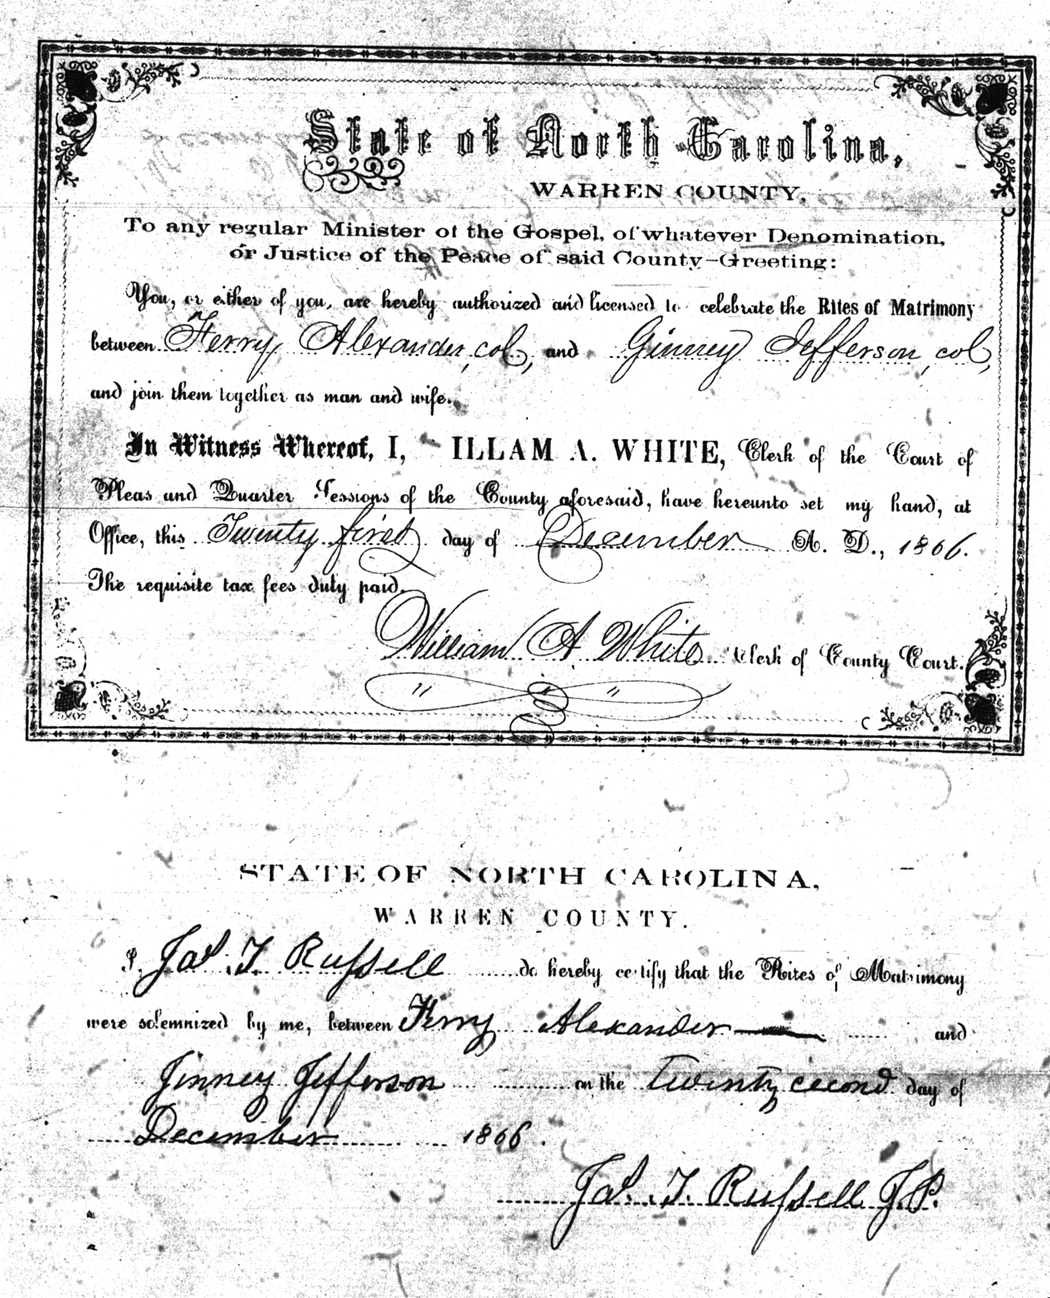 State of North Carolina,
WARREN COUNTY.
To any regular Minister of the Gospel, of whatever Denomination,
or Justice of the Peace of said County—Greeting:
You, or either of you, are hereby authorized and licensed to celebrate the Rites of Matrimony
between Ferry Alexander, col, and Ginney Jefferson, col,
and join them together as man and wife.
In Witness Whereof, I, ILLAM A. WHITE, Clerk of the Court of
Pleas and Quarter Sessions of the County aforesaid, have hereunto set my hand, at
Office, this Twenty first day of December A. D., 1866.
The requisite tax fees duty paid.
William A White Clerk of County Court.
STATE OF NORTH CAROLINA,
WARREN COUNTY.
I, Jas. T. Russell do hereby certify that the Rites of Matrimony
were solemnized by me, between Ferry Alexander and
Jinney Jefferson on the twenty cecond day of
December 1866.
Jas. T. Russell J.P.